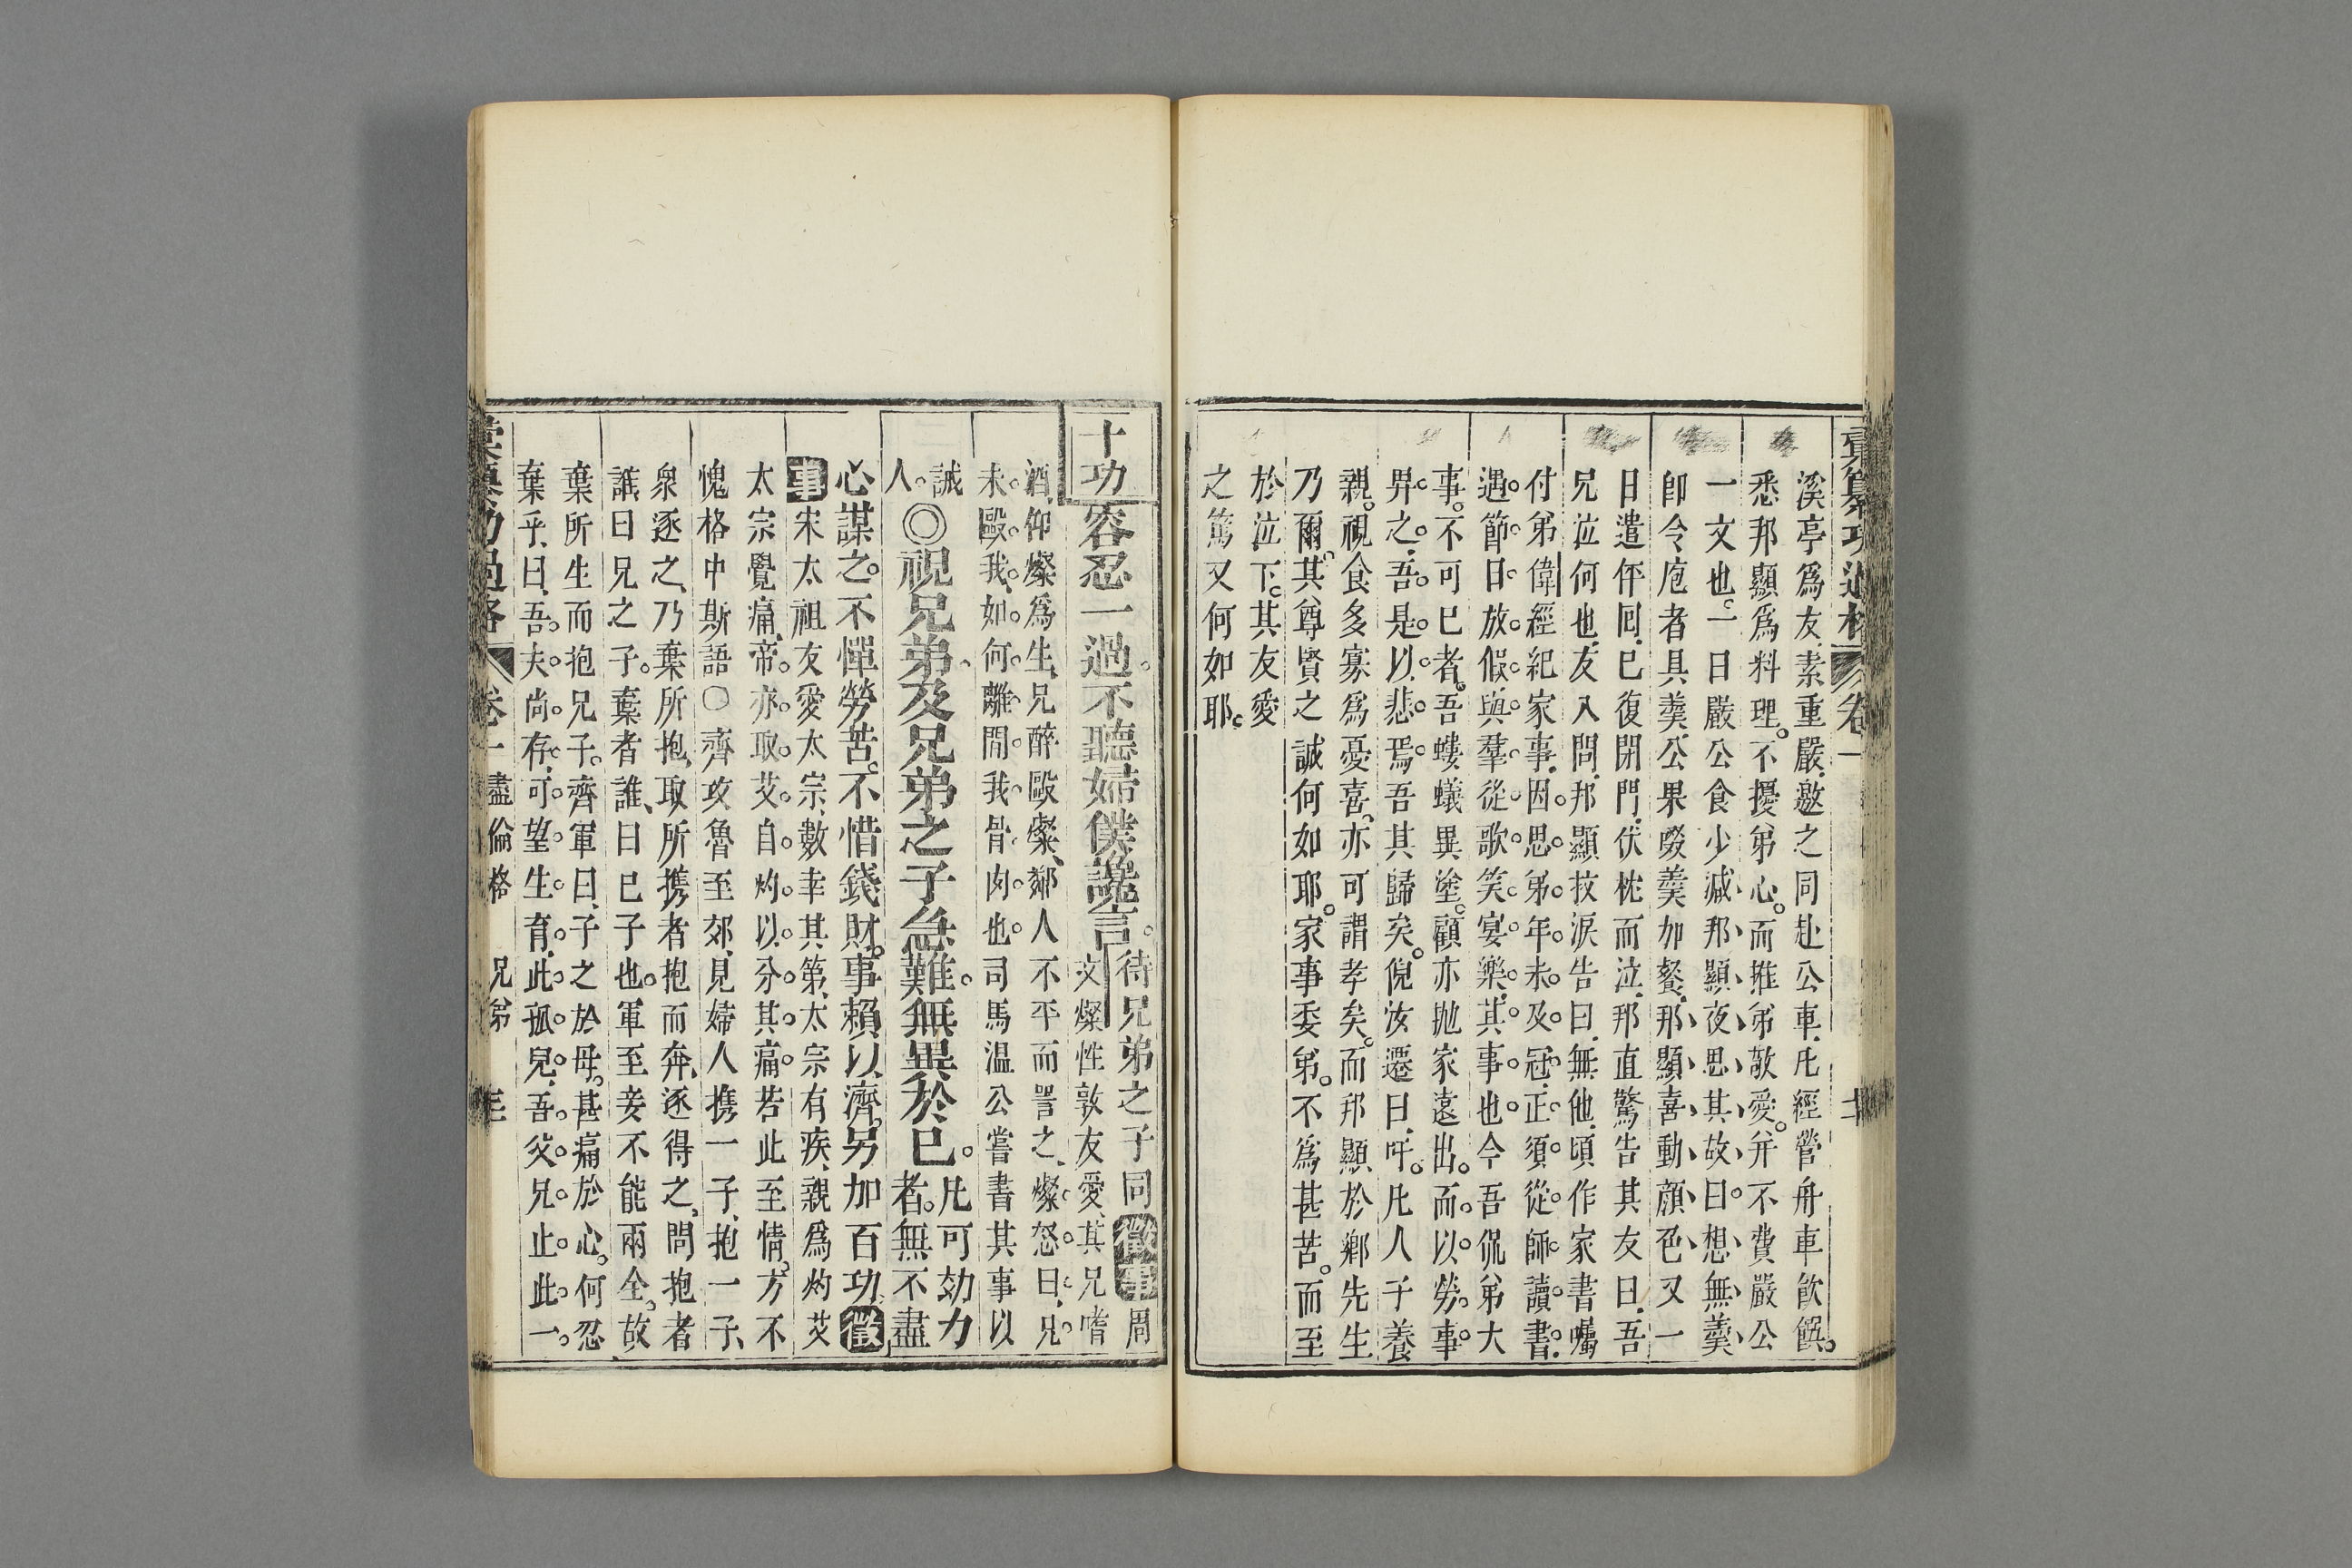 彙纂功過格 卷一
溪亭爲友素重嚴邀之同赴公車凡經營舟車飮饌
悉邦顯爲料理不擾弟心而推弟敬愛并不費嚴公
一文也一日嚴公食少減邦顯夜思其故曰想無羹
卽令庖者具羹公果啜羹加餐邦顯喜動顏色又一
日遣伻回已復閉門伏枕而泣邦直驚告其友曰吾
兄泣何也友入問邦顯抆淚告曰無他頃作家書囑
付弟偉經紀家事因思弟年未及冠正須從師讀書
遇節日放假與羣從歌笑宴樂其事也今吾侃弟大
事不可已者吾螻蟻異塗顧亦拋家遠出而以勞事
畀之吾是以悲焉吾其歸矣倪汝遷曰吁凡人子養
親視食多寡爲憂喜亦可謂孝矣而邦顯於鄉先生
乃爾其尊賢之誠何如耶家事委弟不爲甚苦而至
於泣下其友愛
之篤又何如耶
十功
容忍一過不聽婦僕讒言待兄弟之子同徵事周
文燦性敦友愛其兄嗜
酒仰燦爲生兄醉毆燦鄰人不平而詈之燦怒曰兄
未毆我如何離間我骨肉也司馬溫公嘗書其事以
誡
人◎視兄弟及兄弟之子急難無異於己凡可効力
者無不盡
心謀之不憚勞苦不惜錢財事賴以濟另加百功徵
事宋太祖友愛太宗數幸其第太宗有疾親爲灼艾
太宗覺痛帝亦取艾自灼以分其痛若此至情方不
愧格中斯語○齊攻魯至郊見婦人攜一子抱一子
衆逐之乃棄所抱取所攜者抱而奔逐得之問抱者
誰曰兄之子棄者誰曰已子也軍至妾不能兩全故
棄所生而抱兄子齊軍曰子之於母甚痛於心何忍
棄乎曰吾夫尚存可望生育此孤兒吾父兄止此一
彙纂功過格 卷一 盡倫格 兄弟